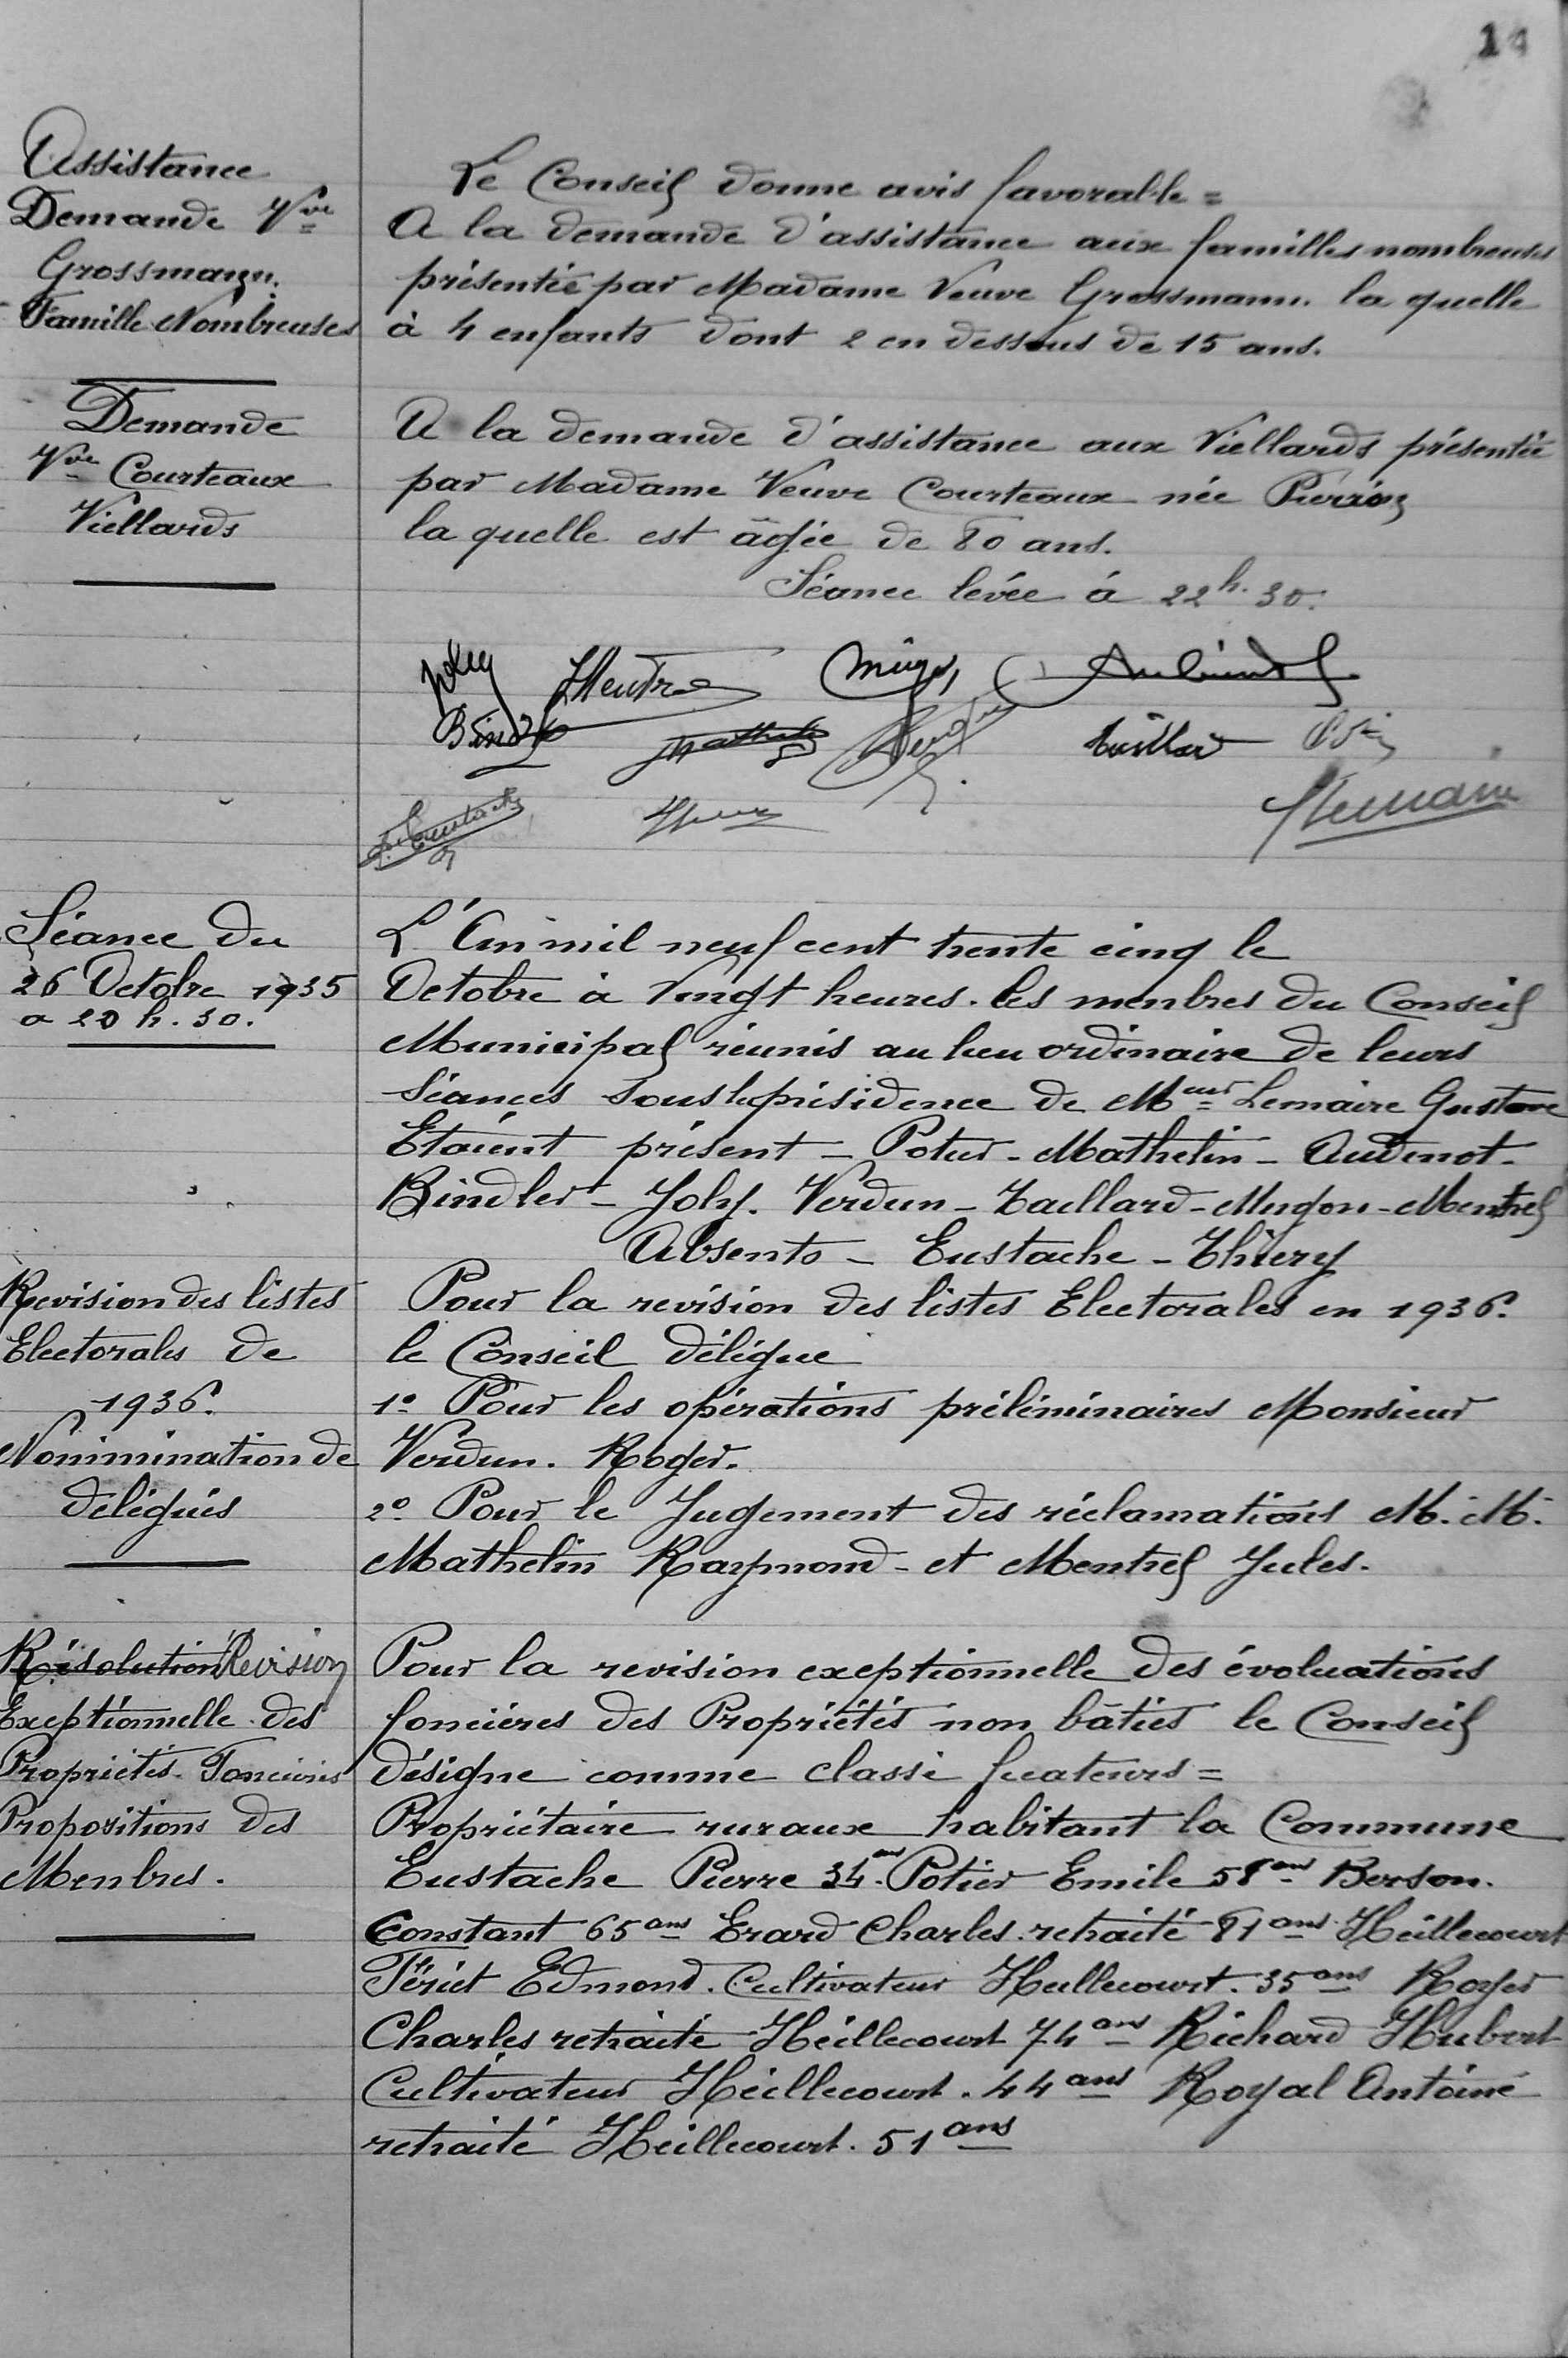 14
Assistance
Demande Vve
Grossmann.
Famille Nombreuses
Le Conseil donne avis favorable =
A la demande d'assistance aux familles nombreuses
présentée par Madame Veuve Grossmann. la quelle
à 4 enfants dont 2 en dessous de 15 ans.
Demande
Vve Courteaux
Viellards
A la demande d'assistance aux Viellards présentée
par Madame Veuve Courteaux née Pierron
la quelle est âgée de 80 ans.
Séance levée à 22h. 30.
Joly
Bindler
Mathelin
Taillard
P. Eustache
GLemaire
Séance du
26 Octobre 1935
a 20 h. 30.
L'An mil neuf cent trente cinq le
Octobre à Vingt heures. les menbres du Conseil
Municipal réunis au lieu ordinaire de leurs
Séances sous la présidence de Meur Lemaire Gustave
Etaient présent - Potier - Mathelin - Audinot -
Bindler - Joly. Verdun - Taillard - Mugon - Mentrel
Absents - Eustache - Thiery
Revision des listes
Electorales de
1936.
Nonimination de
délégués
Pour la revision des listes Electorales en 1936.
le Conseil délégue
1º Pour les opérations préléminaires Monsieur
Verdun. Roger.
2º Pour le Jugement des réclamations M. M.
Mathelin Raymond - et Mentrel Jules.
Résolution Revision
Exeptionnelle des
Propriétés Foncières
Propositions des
Menbres.
Pour la revision exeptionnelle des évoluations
foncières des Propriétés non bâties le Conseil
désigne comme classi ficateurs =
Propriétaire ruraux habitant la Commune
Eustache Pierre 34 ans. Potier Emile 58 ans Berson.
Constant 65 ans Erard Charles retraité 81 ans Heillecourt
Fériet Edmond. Cultivateur Heillecourt. 35 ans Royer
Charles retraité Heillecourt 74 ans Richard Hubert
Cultivateur Heillecourt. 44 ans Royal Antoine
retraité Heillecourt. 51 ans